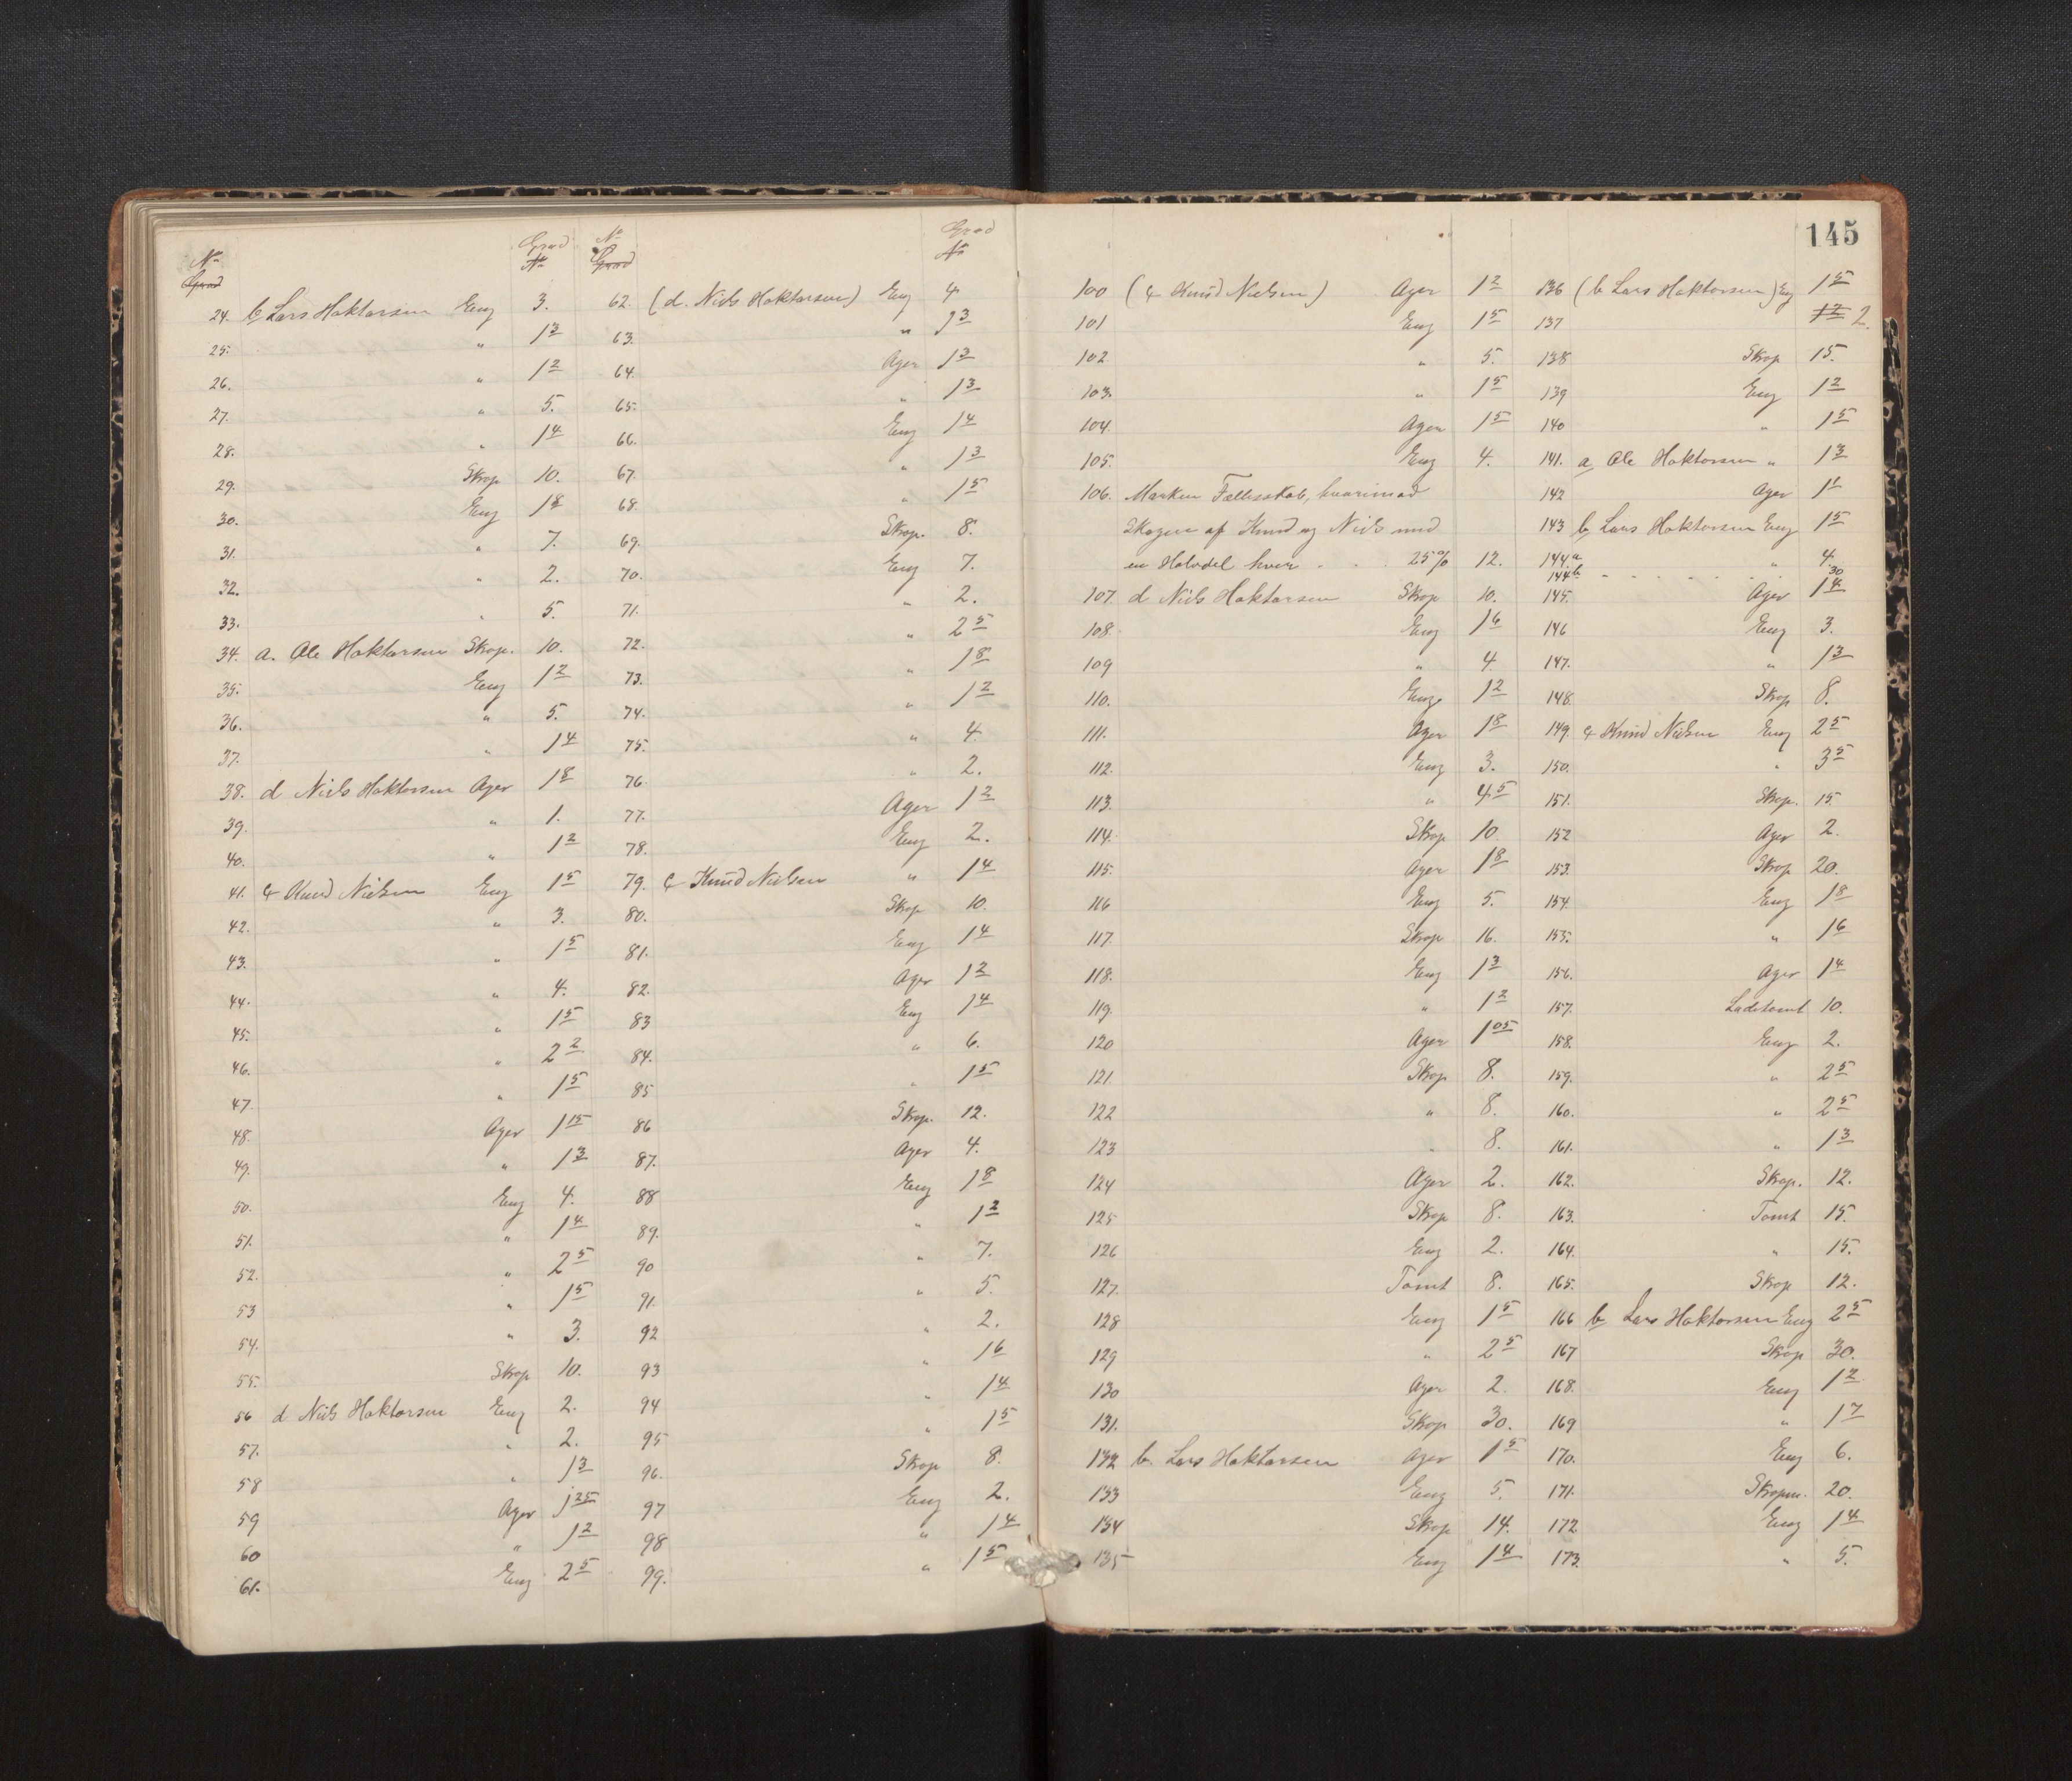 145
No Grad
24. b Lars Haktorsen Eng 3.
25. " 1 3
26. " 1 2
27. " 5.
28. " 1 4
29. Skog 10.
30. Eng 1 8
31. " 7.
32. " 2.
33. " 5.
34. a. Ole Haktorsen Skog. 10.
35. Eng 1 2
36. " 5.
37. " 1 4
38. d Niels Haktorsen Ager 1 8
39. " 1.
40. " 1 2
41. c Knud Nielsen Eng 1 5
42. " 3.
43. " 1 5
44. " 4.
45. " 1 5
46. " 2 2
47. " 1 5
48. Ager 1 15
49. " 1 3
50. Eng 4.
51. " 1 4
52. " 2 5
53 " 1 5
54. " 3.
55. Skog 10.
56 d Niels Haktorsen Eng 2.
57. " 2.
58 " 1 3
59 Ager 1 25
60 " 1 2
61. Eng 2 5
No Grad
62. (d. Niels Haktorsen) Eng 4
63. " 1 3
64. Ager 1 3
65. " 1 3
66. Eng 1 4
67. " 1 3
68. " 1 5
69. Skog. 8.
70. Eng 7.
71. " 2.
72. " 2 5
73. " 1 8
74. " 1 2
75. " 4
76. " 2.
77. Ager 1 2
78. Eng 2.
79. c Knud Nielsen " 1 4
80. Skog 10.
81. Eng 1 4
82. Ager 1 2
83 Eng 1 4
84. " 6.
85 " 1 5
86 Skog. 12.
87. Ager 4.
88 Eng 1 8
89. " 1 2
90 " 7.
91. " 5.
92 " 2.
93 " 1 6
94 " 1 4
95 " 1 5
96. Skog 8.
97 Eng 2.
98 " 1 4
99. " 1 5
100 (c Knud Nielsen) Ager 1 2
101 Eng 1 5
102. " 5.
103. " 1 5
104. Ager 1 5
105. Eng 4.
106. Marken Fællesskab, hvorimod
Skogen af Knud og Niels med
en Halvdel hver . . . 25% 12.
107. d Niels Haktorsen Skog 10.
108. Eng 1 6
109 " 4
110. Eng 1 2
111. Ager 1 8
112. Eng 3.
113. " 4 5
114. Skog 10.
115. Ager 1 8
116 Eng 5.
117. Skog 16.
118. Eng 1 3
119. " 1 2
120 Ager 1 05
121. Skog 8.
122 " 8.
123 " 8.
124 Ager 2.
125 Skog 8.
126 Eng 2.
127. Tomt 8.
128 Eng 1 5
129 " 2 5
130 Ager 2.
131. Skog 30.
132 b. Lars Haktorsen Ager 1 5
133 Eng 5.
134 Skog 14.
135 Eng 1 4
136 (b Lars Haktorsen) Eng 1 5
137 1 2 2.
138 Skog 15.
139 Eng 1 2
140 " 1 5
141. a Ole Haktorsen " 1 3
142 Ager 1 1
143 b Lars Haktorsen Eng 1 5
144.a " 4.
144 b. - - - - - 30
145. Ager 1 4
146 Eng 3.
147. " 1 3
148. Skog 8.
149. c Knud Nielsen Eng 2 5
150. " 3 5
151. Skog. 15.
152 Ager 2.
153. Skog 20.
154. Eng 1 8
155. " 1 6
156. Ager 1 4
157. Ladetomt 10.
158. Eng 2.
159. " 2 5
160. " 2 5
161. " 1 3
162. Skog. 12.
163. Tomt 15.
164. " 15.
165. Skog 12.
166 b Lars Haktorsen Eng 2 5
167 Skog 30.
168. Eng 1 2
169 " 1 7
170. Eng 6.
171. Skogm. 20.
172. Eng 1 4
173. " 5.